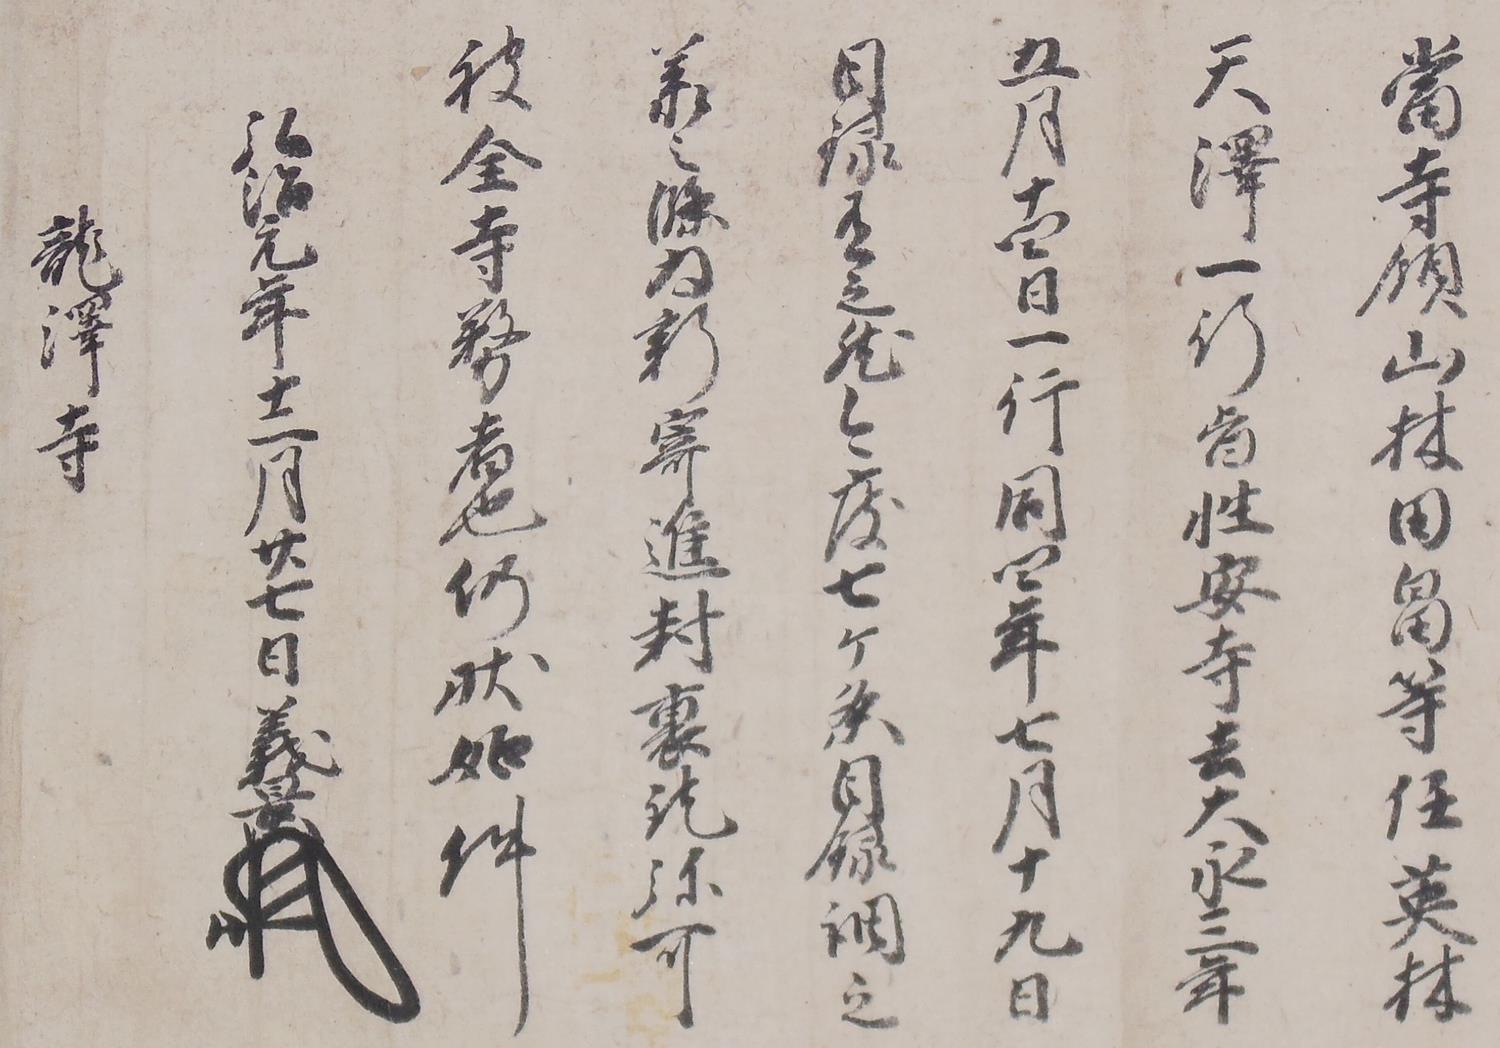 當寺領山林田畠等任英林
天澤一行旨性安寺去大永三年
五月十四日一行同四年七月十九日
目録有之然今度七ケ条目録調之
義之條為新寄進封裏訖弥可
被全寺務者也仍状如件
弘治元年十二月廿七日義景
龍澤寺